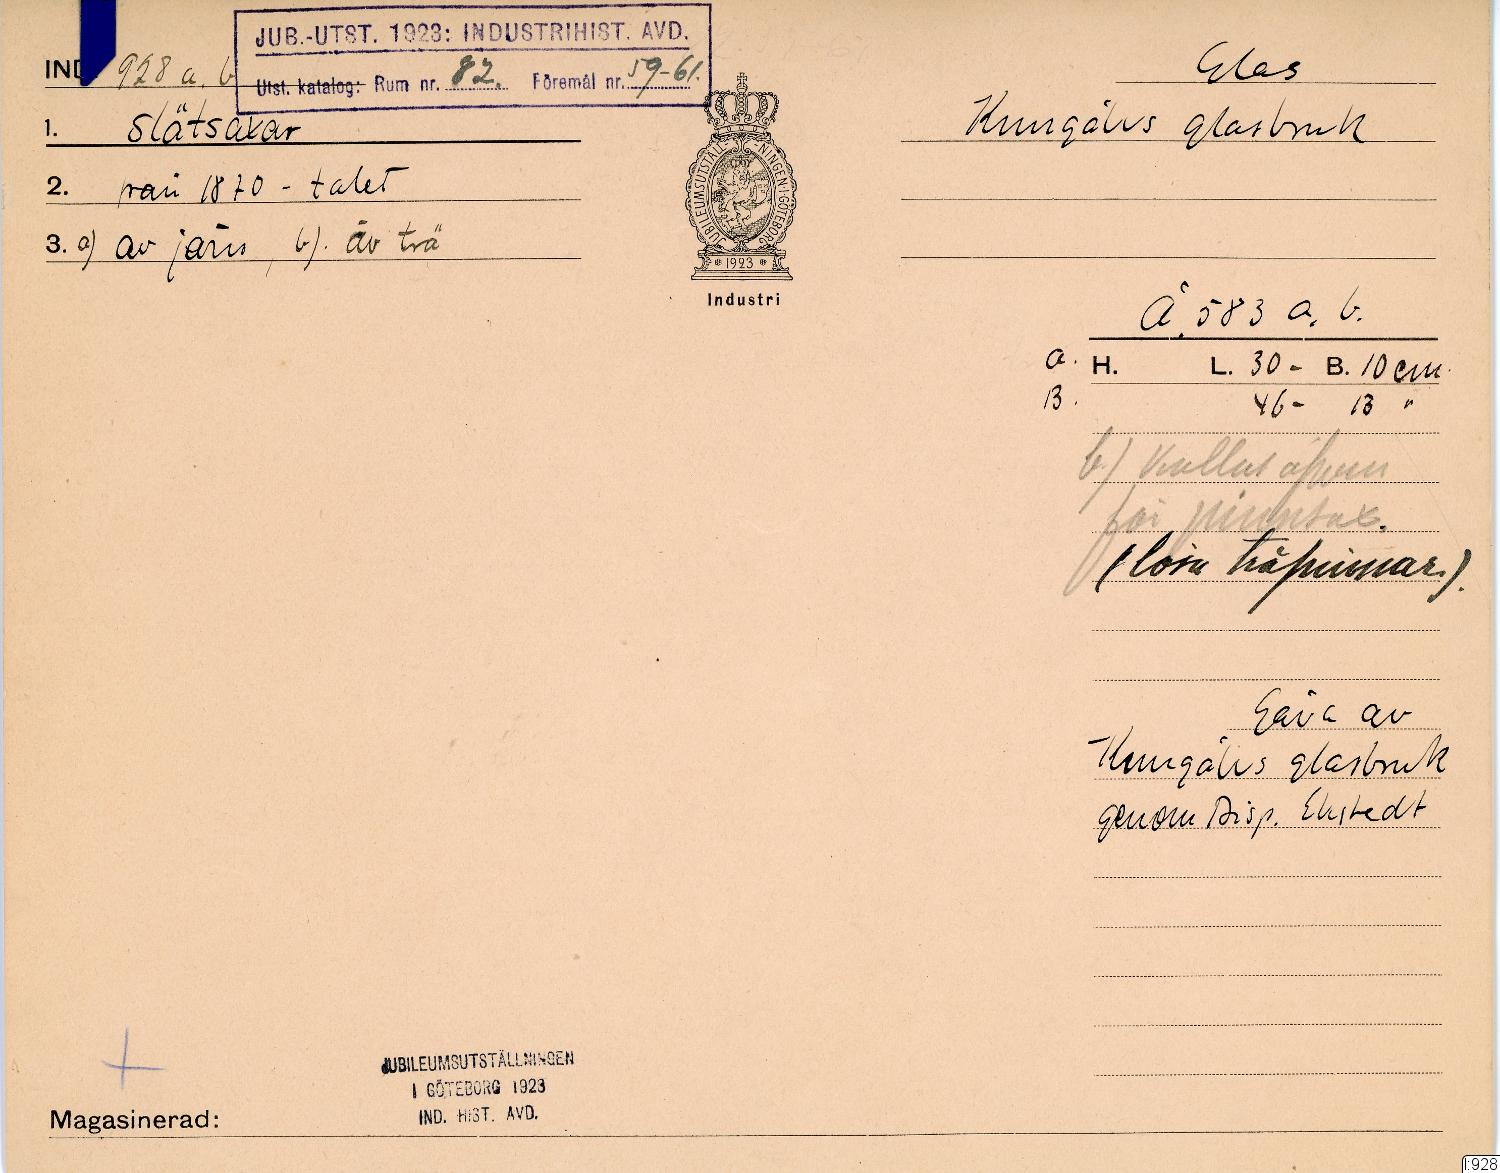 JUB.-UTST. 1923: INDUSTRIHIST. AVD.
Utst. katalog: Rum nr. 82. Föremål nr. 59-61.
IND. 928 a, b
Glas
Kungälvs glasbruk
1. Slätsaxar
2. från 1870-talet
3. a) av järn, b). av trä
JUBILEUMSUTSTÄLLNINGEN I GÖTEBORG
1923
Industri
Å. 583 a, b.
a. H. L. 30- B. 10 cm.
B. 46- 13 "
b) kallas även
för pinnsax.
(lösa träpinnar.).
Gåva av
Kungälvs glasbruk
genom Disp. Ekstedt
JUBILEUMSUTSTÄLLNINGEN
I GÖTEBORG 1923
IND. HIST. AVD.
Magasinerad:
I:928